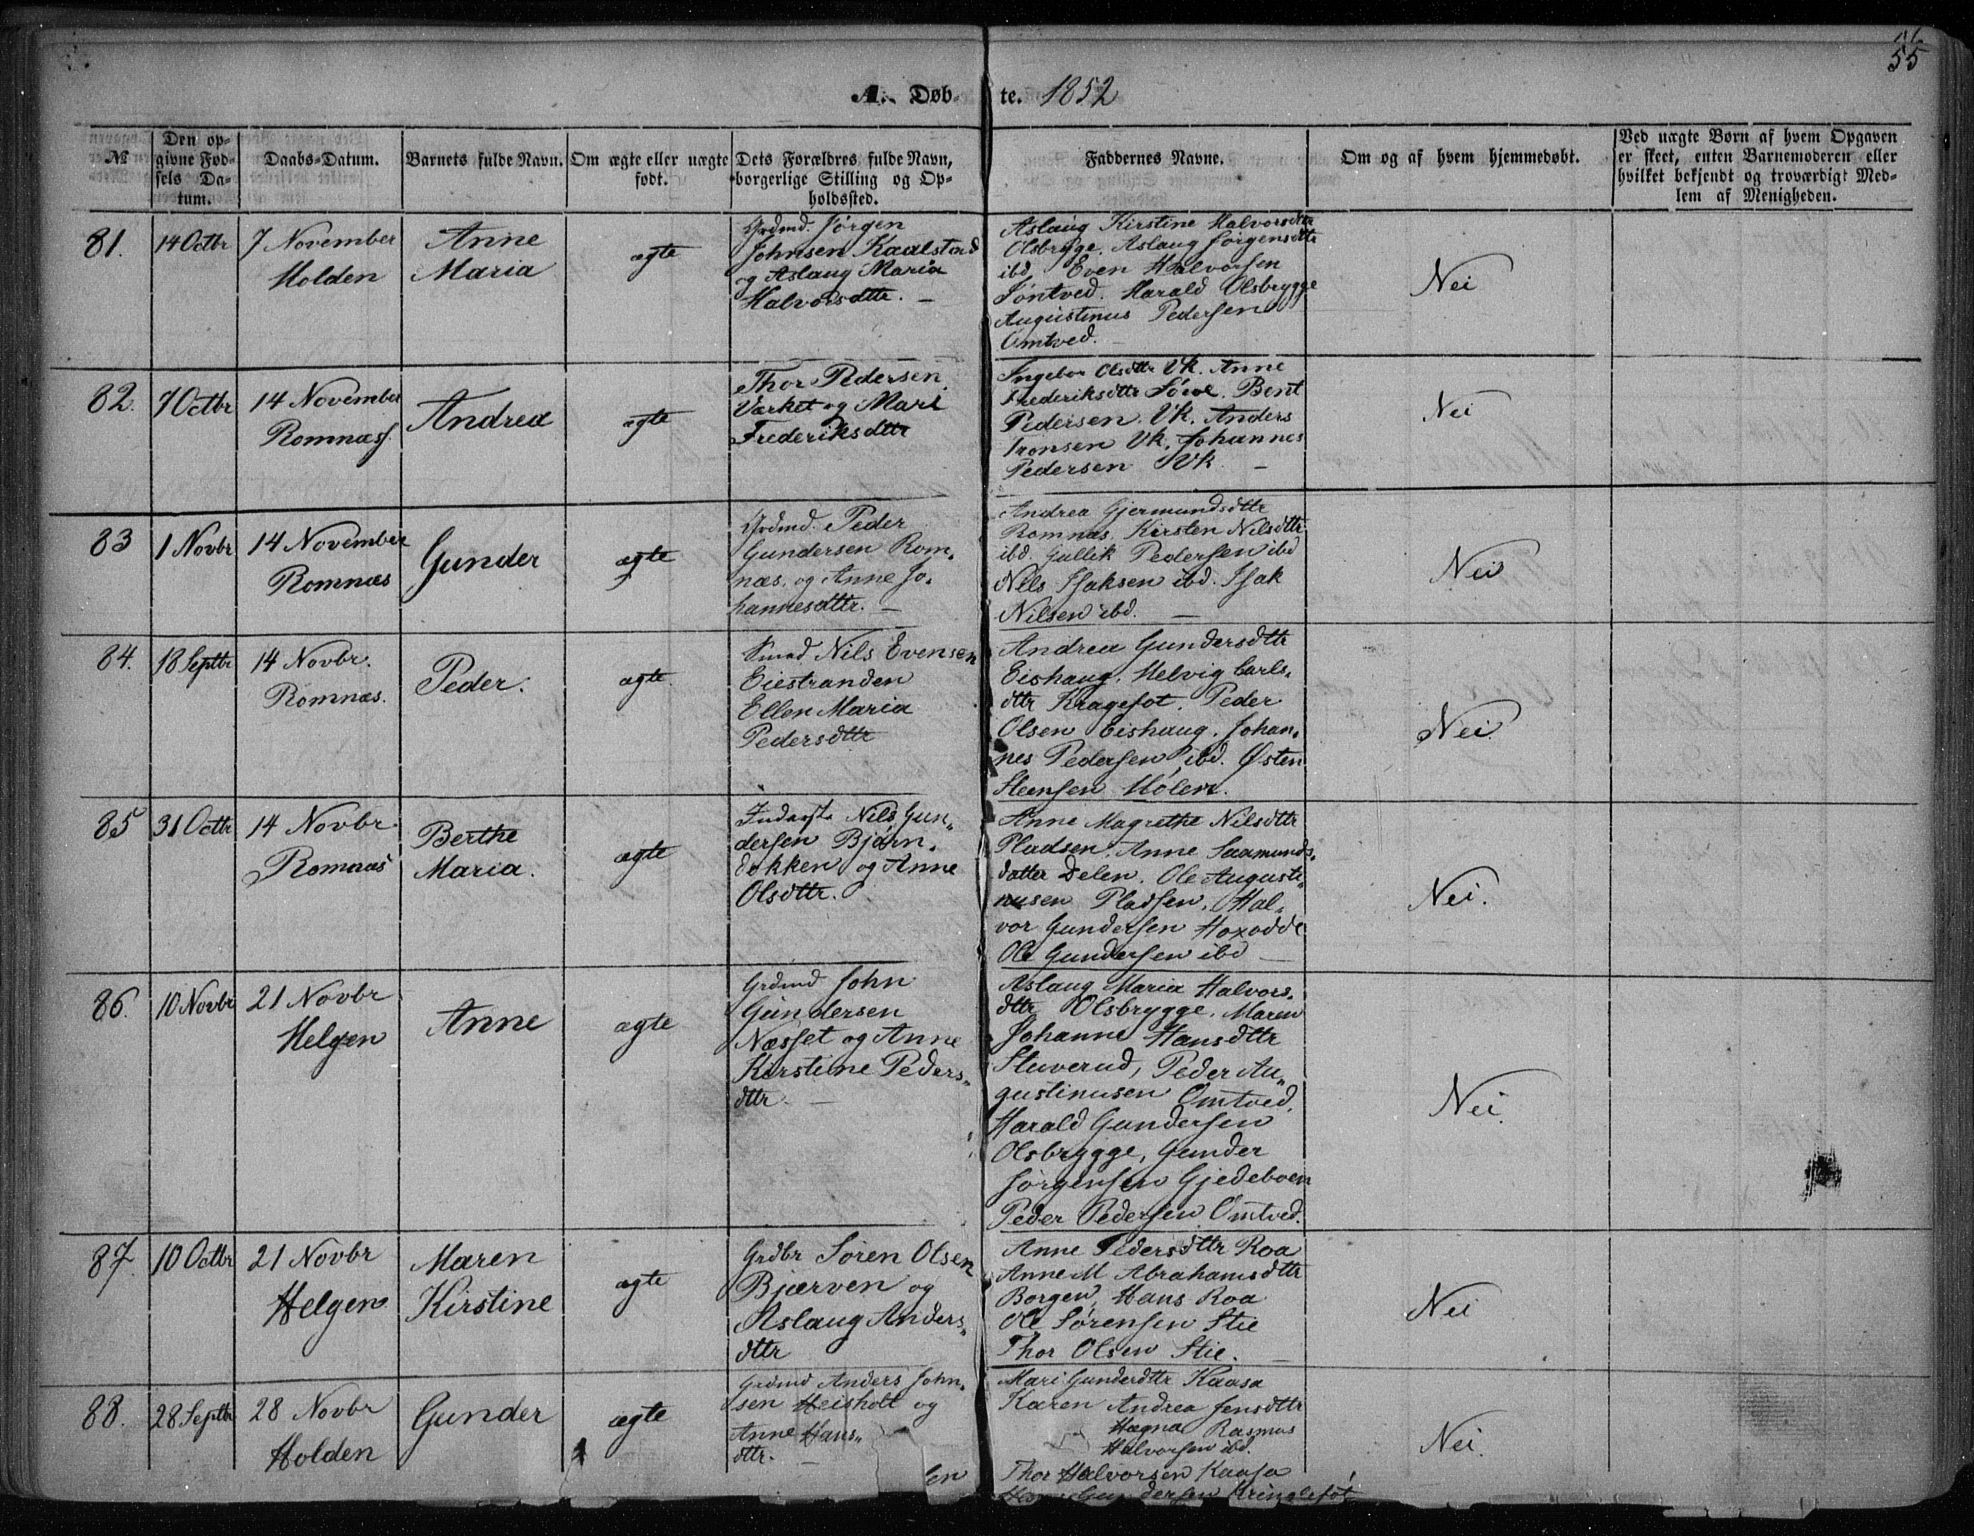 55
A. Døb- te. 1852
№
Den op-
givne Fød-
sels Da-
tum.
Daabs-Datum.
Barnets fulde Navn.
Om ægte eller uægte
født.
Dets Forældres fulde Navn,
borgerlige Stilling og Op-
holdssted.
Faddernes Navne.
Om og af hvem hjemmedøbt.
Ved uægte Børn af hvem Opgaven
er skeet, enten Barnemoderen eller
hvilket bekjendt og troværdigt Med-
lem af Menigheden.
81.
14 Octbr
7 November
Holden
Anne
Maria
ægte
Grdmd. Jørgen
Johnsen Kaalstad
og Aslaug Maria
Halvorsdttr. —
Aslaug Kirstine Halvorsdttr
Olsbrygge. Aslaug Jørgensdttr
ibd, Even Halvorsen
Søntved. Harald Olsbrygge
Augustinus Pedersen
Omtved.
Nei
82.
7 Octbr
14 November
Romnæs.
Andrea
ægte
Thor Pedersen
Værket og Mari
Frederiksdttr
Ingebor Olsdttr Vk. Anne
Frederiksdttr Søve. Bent
Pedersen. Vk. Anders
Tronsen Vk. Johannes
Pedersen Vk —
Nei
83
1 Novbr
14 November
Romnæs
Gunder
ægte
Grdmd. Peder
Gundersen Rom-
næs. og Anne Jo-
hannesdttr. —
Andrea Gjermundsdttr
Romnæs. Kirsten Nilsdttr
ibd. Gullik Pedersen ibd
Nils Isaksen ibd. Isak
Nilsen ibd. —
Nei
84.
18 Septbr
14 Novbr.
Romnæs.
Peder.
ægte.
Smed Nils Evensen
Eiestranden
Ellen Maria
Pedersdttr
Andrea Gundersdttr
Eishaug. Helvig Carls-
dttr Kragefot. Peder
Olsen Eishaug. Johan-
nes Pedersen ibd. Østen
Steensen Molen.
Nei.
85
31 Octbr
14 Novbr.
Romnæs
Berthe
Maria.
ægte
Inderst Nils Gun-
dersen Bjørn-
dokken og Anne
Olsdttr.
Anne Magrethe Nilsdttr
Pladsen. Anne Saamunds-
datter Delen. Ole Augusti-
nusen Pladsen, Hal-
vor Gundersen Hoxodde
Ole Gundersen ibd —
Nei.
86.
10 Novbr
21 Novbr
Helgen
Anne
ægte
Grdmd John
Gundersen
Næsset og Anne
Kirstine Peders-
dttr. —
Aslaug Maria Halvors-
dttr Olsbrygge. Maren
Johanne Hansdttr
Stuverud, Peder Au-
gustinusen Omtved,
Harald Gundersen
Olsbrygge, Gunder
Jørgensen Gjedeboen
Peder Pedersen Omtved.
Nei.
87.
10 Octbr
21 Novbr
Helgen
Maren
Kirstine
ægte
Grdbr Søren Olsen
Bjærven og
Aslaug Anders-
dttr
Anne Pedersdttr Roa
Anne M Abrahamsdttr
Borgen, Hans Roa
Ole Sørensen Stie
Thor Olsen Stie. —
Nei
88.
28 Septbr
28 Novbr
Holden
Gunder
ægte
Grdmd Anders John-
sen Heisholt og
Anne Hans-
dttr. —
Mari Gunderdttr Kaasa
Karen Andrea Jensdttr
Hagna Rasmus
Halvorsen ibd.
Thor Halvorsen Kaasa
Gundersen Kringlefot
Nei.